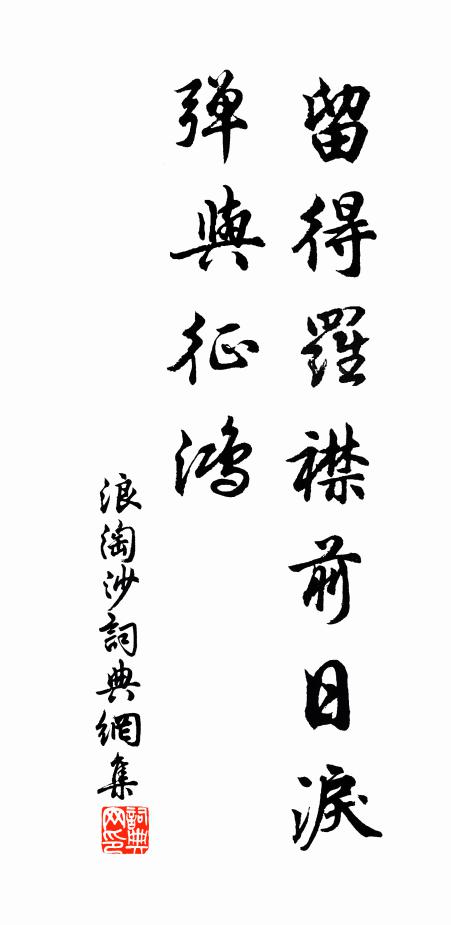 留得羅襟前日淚
弾與征鴻
浪淘沙詞典網集
詞典网印